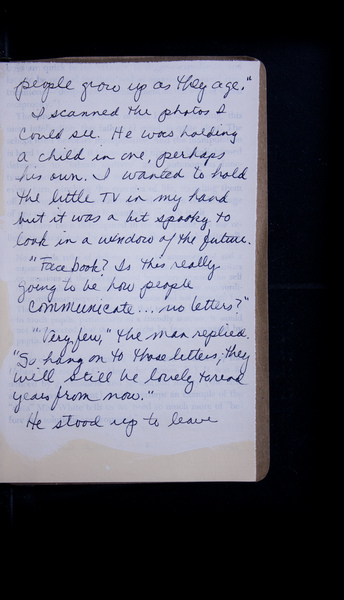 people grow up as they age."
I scanned the photos I
could see. He was holding
a child in one, perhaps
his own. I wanted to hold
the little TV in my hand
but it was a bit spooky to
look in a window of the future.
"Facebook? Is this really
going to be how people
communicate... no letters?"
"Very few," the man replied.
"So hang on to those letters; they
will still be lovely to read
years from now."
He stood up to leave